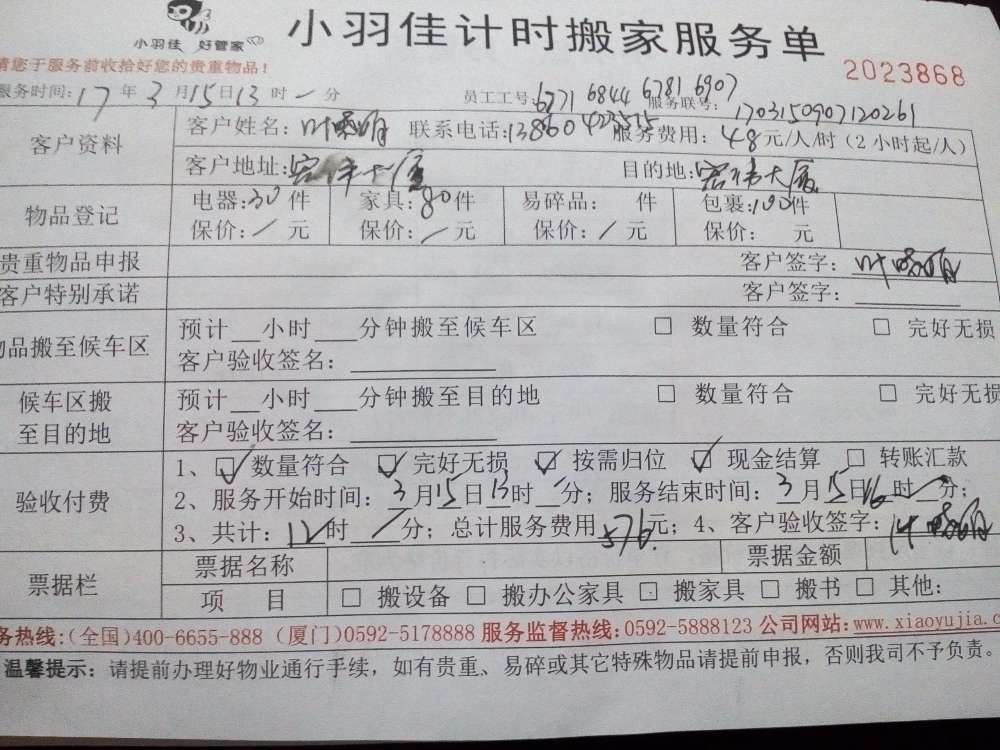 小羽佳 好管家
小羽佳计时搬家服务单
请您于服务前收拾好您的贵重物品!
2023868
服务时间:17年3月15日13时-分 员工工号:6771 6844 6781 6907 服务联号:1703150907120261
客户资料
客户姓名:叶 联系电话:13860 服务费用:48元/人/时(2小时起/人)
客户地址:宏伟大厦 目的地:宏伟大厦
物品登记
电器:30件 家具:80件 易碎品: 件 包裹:100件
保价:/元 保价:/元 保价:/元 保价: 元
贵重物品申报 客户签字:叶
客户特别承诺 客户签字:
物品搬至候车区
预计__小时___分钟搬至候车区 □ 数量符合 □ 完好无损
客户验收签名:
候车区搬至目的地
预计__小时___分钟搬至目的地 □ 数量符合 □ 完好无损
客户验收签名:
验收付费
1、☑数量符合 ☑完好无损 ☑按需归位 ☑现金结算 □ 转账汇款
2、服务开始时间:3月15日13时__分;服务结束时间:3月15日16时__分;
3、共计:12时/分;总计服务费用576元;4、客户验收签字:叶
票据栏
票据名称 票据金额
项 目 □ 搬设备 □ 搬办公家具 □ 搬家具 □ 搬书 □ 其他:
务热线:(全国)400-6655-888 (厦门)0592-5178888 服务监督热线:0592-5888123 公司网站:www.xiaoyujia.c
温馨提示:请提前办理好物业通行手续,如有贵重、易碎或其它特殊物品请提前申报,否则我司不予负责。